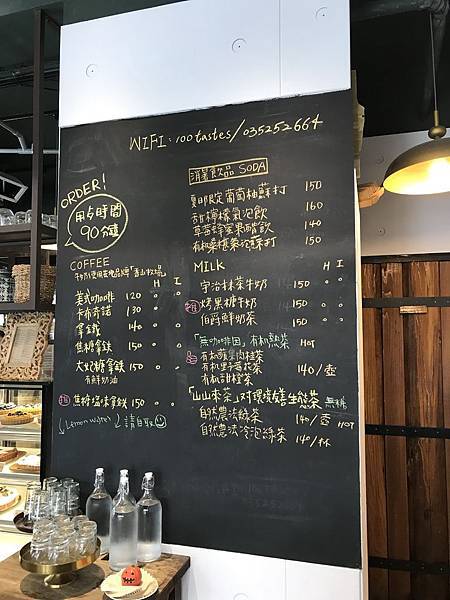 WIFI: 100tastes/035252664
ORDER!
用餐時間
90分鐘
COFFEE
H I
美式咖啡 120 o o
卡布奇諾 130 o
拿鐵 140 o o
焦糖拿鐵 150 o o
太妃糖拿鐵 150 o o
有鮮奶油
推 焦糖海鹽拿鐵 150 o o
↓Lemon water↓ 請自取
消暑飲品 SODA
夏日限定葡萄柚蘇打 150
甜檸檬氣泡飲 160
草莓蜂蜜果醋飲 140
有機桑椹茶泡蘇打 150
MILK
H I
宇治抹茶牛奶 150 o o
推 烤黑糖牛奶 150 o o
伯爵鮮奶茶 150 o o
「無咖啡因」有機熱茶 HOT
有機蘋果肉桂茶
有機野莓花茶 140/壺
有機甜橙茶
「山山來茶」對環境友善生態茶 無糖
自然農法綠茶 140/壺 HOT
自然農法冷泡綠茶 140/杯